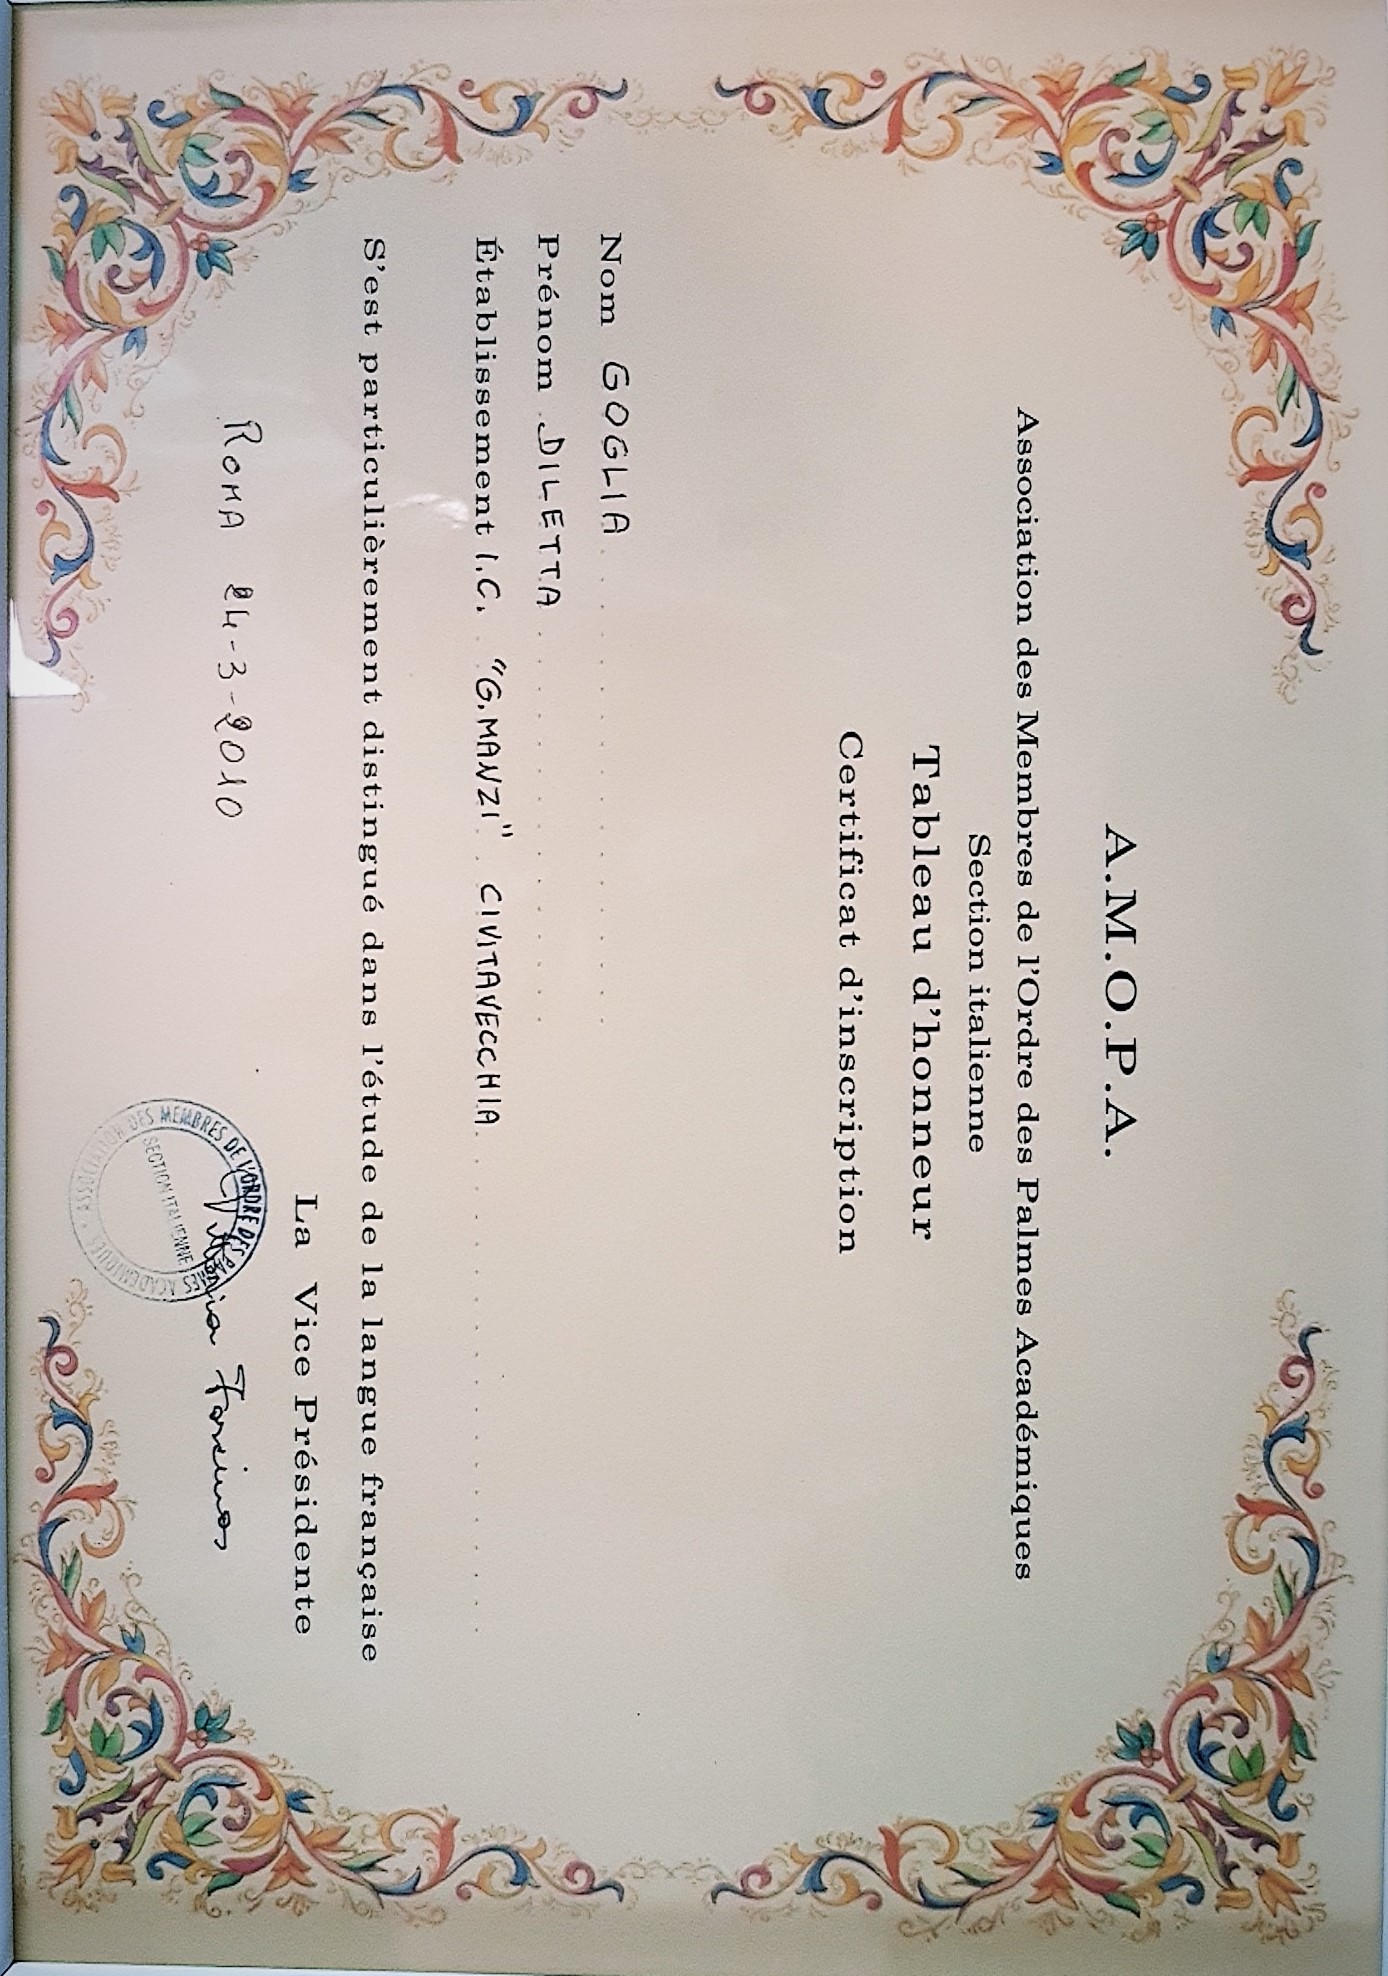 A.M.O.P.A.
Association des Membres de l'Ordre des Palmes Académiques
Section italienne
Tableau d'honneur
Certificat d'inscription
Nom GOGLIA
Prénom DILETTA
Établissement I.C. "G.MANZI" CIVITAVECCHIA
S'est particulièrement distingué dans l'étude de la langue française
La Vice Présidente
ROMA 24-3-2010
ASSOCIATION DES MEMBRES DE L'ORDRE DES PALMES ACADEMIQUES
SECTION ITALIENNE